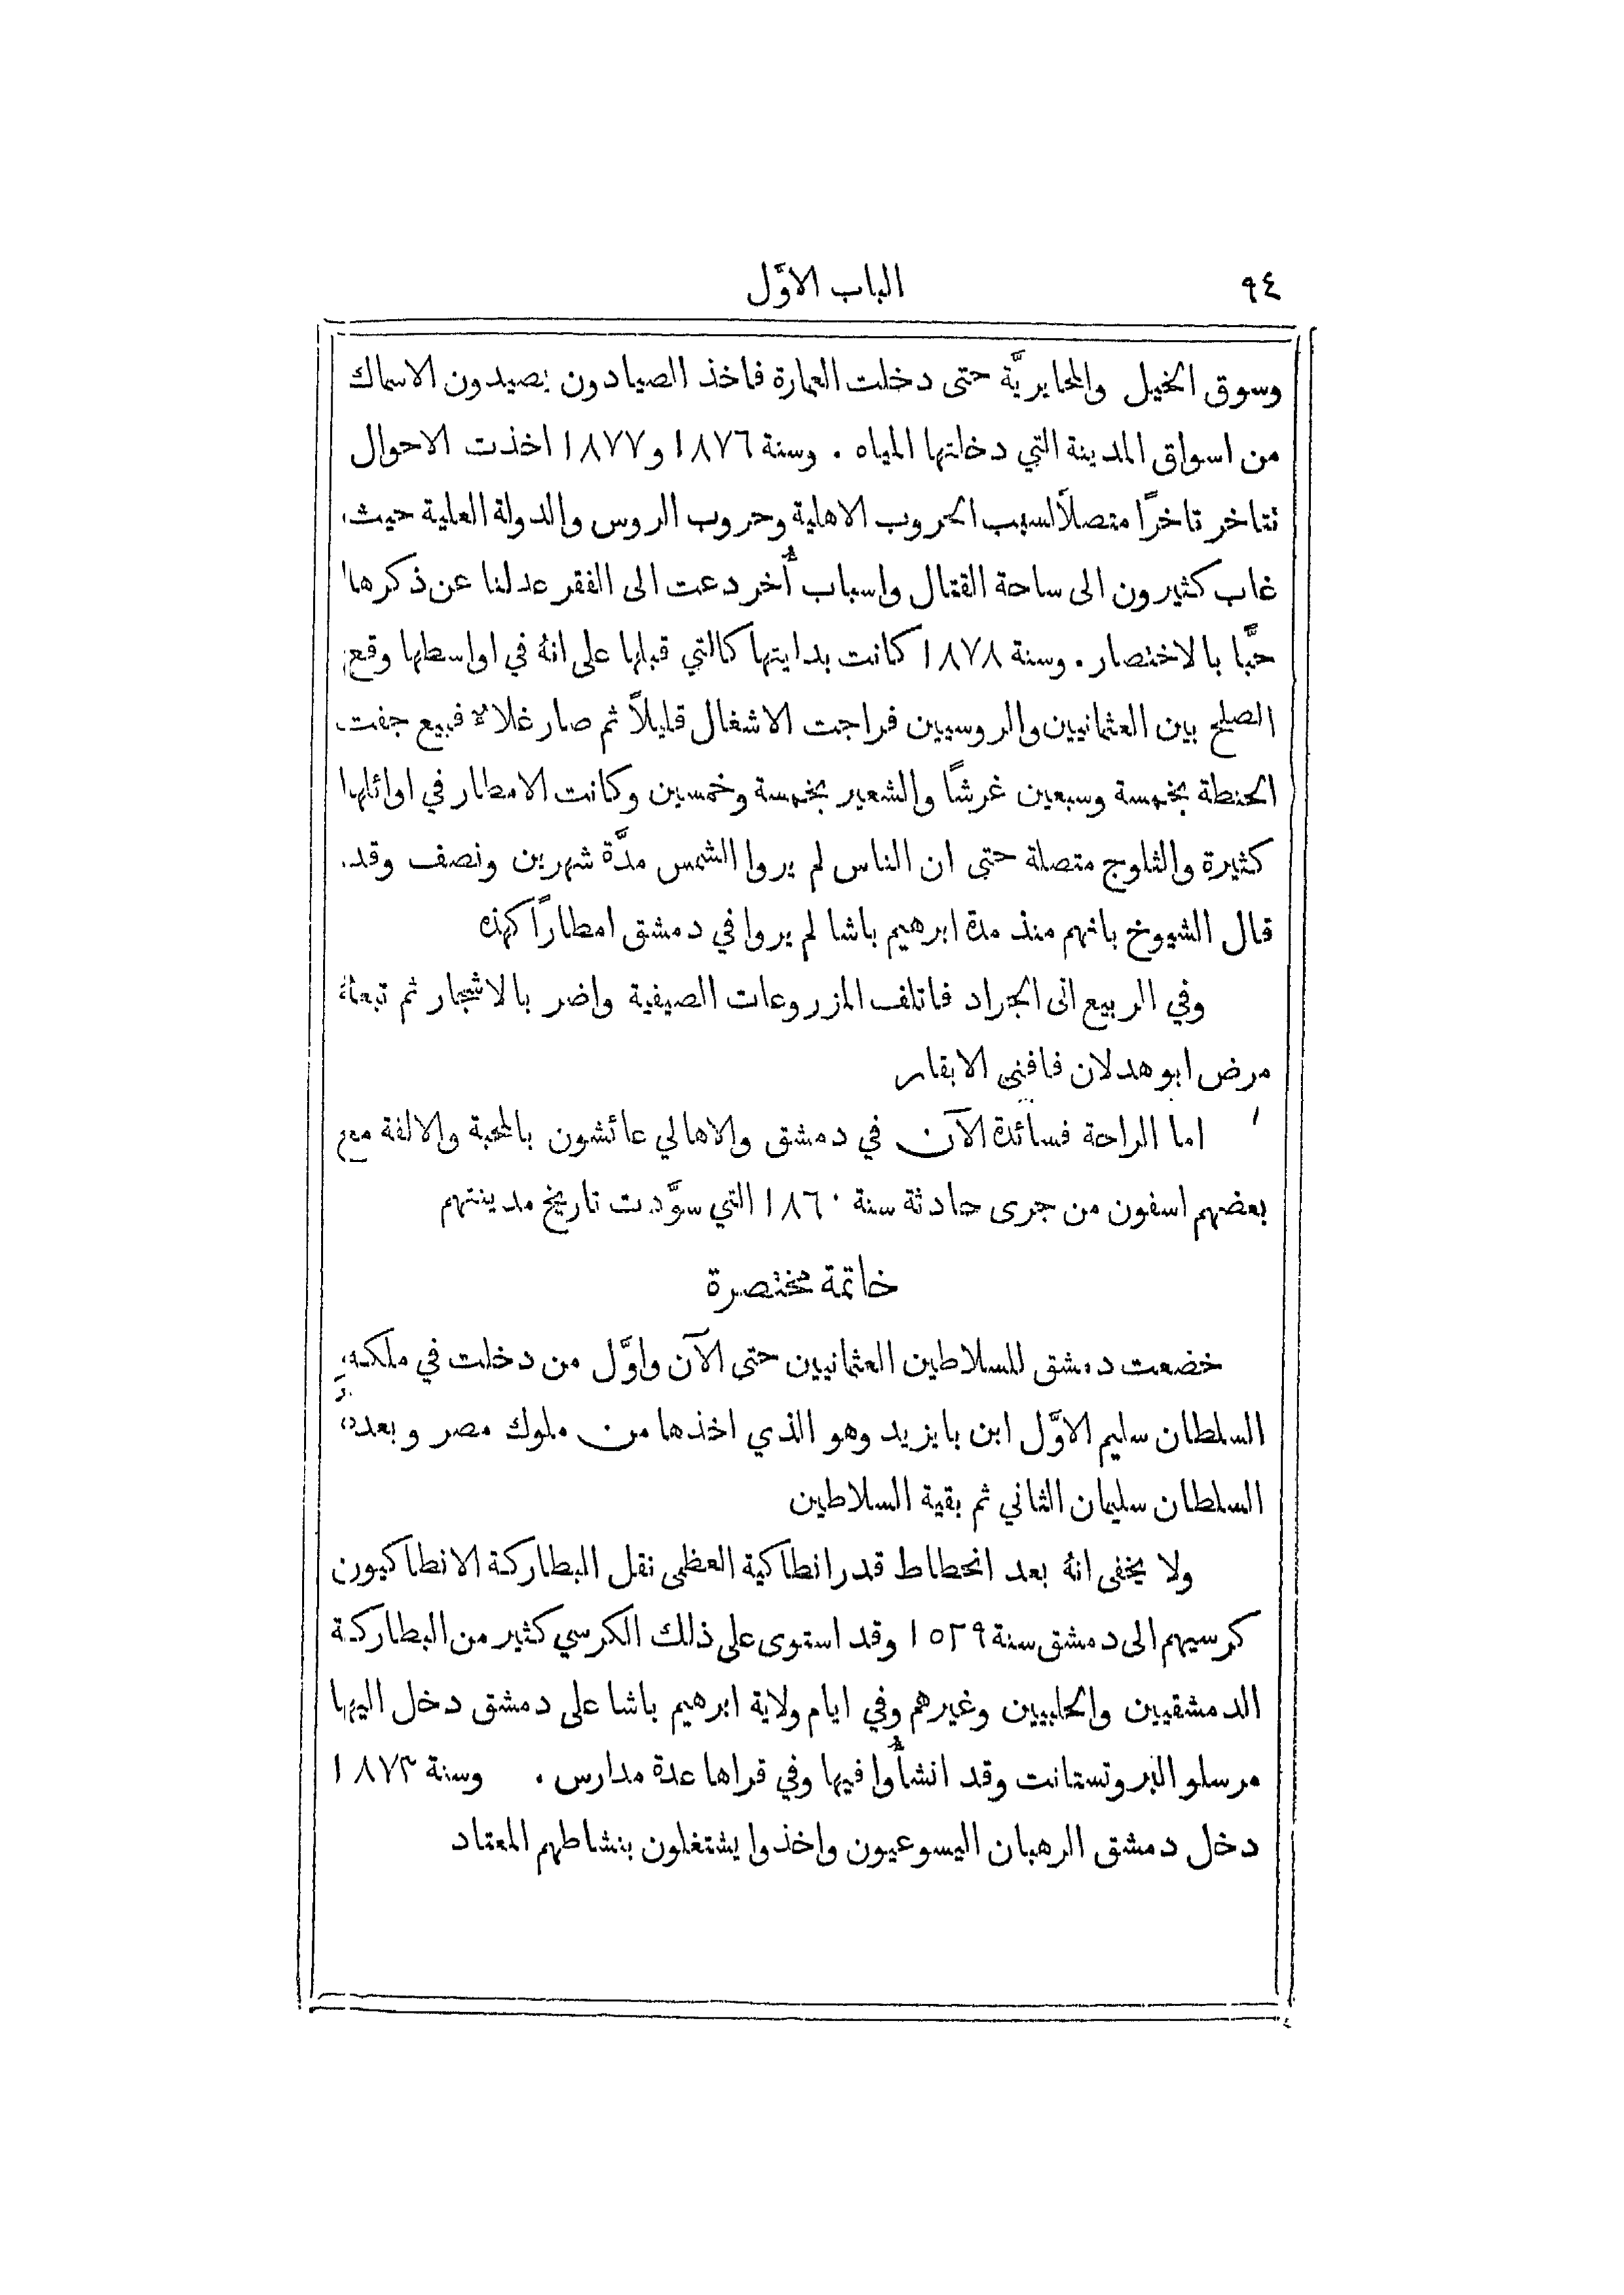 ٩٤ الباب الاوَّل
وسوق الخيل والمحايريَّة حتى دخلت العمارة فاخذ الصيادون يصيدون الاسماك
من اسواق المدينة التي دخلتها المياه . وسنة ١٨٧٦ و١٨٧٧ اخذت الاحوال
نتاخر تاخرًا متصلاً لسبب الحروب الاهلية وحروب الروس والدولة العلية حيث
غاب كثيرون الى ساحة القتال واسباب أُخر دعت الى الفقر عدلنا عن ذكرها
حبًّا بالاختصار . وسنة ١٨٧٨ كانت بدايتها كالتي قبلها على انهُ في اواسطها وقع
الصلح بين العثمانيين والروسيين فراجت الاشغال قليلاً ثم صار غلاء فبيع جفت
الحنطة بخمسة وسبعين غرشًا والشعير بخمسة وخمسين وكانت الامطار في اوائلها
كثيرة والثلوج متصلة حتى ان الناس لم يروا الشمس مدَّة شهرين ونصف وقد
قال الشيوخ بانهم منذ مدة ابرهيم باشا لم يروا في دمشق امطارًا كهذه
وفي الربيع اتى الجراد فاتلف المزروعات الصيفية واضر بالاشجار ثم تبعهُ
مرض ابو هدلان فافنى الابقار
اما الراحة فسائدة الآن في دمشق والاهالي عائشون بالمحبة والالفة مع
بعضهم اسفون من جرى حادثة سنة ١٨٦٠ التي سوَّدت تاريخ مدينتهم
خاتمة مختصرة
خضعت دمشق للسلاطين العثمانيين حتى الآن واوَّل من دخلت في ملكه
السلطان سليم الاوَّل ابن بايزيد وهو الذي اخذها من ملوك مصر وبعدهُ
السلطان سليمان الثاني ثم بقية السلاطين
ولا يخفى انهُ بعد انحطاط قدر انطاكية العظمى نقل البطاركة الانطاكيون
كرسيهم الى دمشق سنة ١٥٢٩ وقد استوى على ذلك الكرسي كثير من البطاركة
الدمشقيين والحلبيين وغيرهم وفي ايام ولاية ابرهيم باشا على دمشق دخل اليها
مرسلو البروتستانت وقد انشأُوا فيها وفي قراها عدة مدارس . وسنة ١٨٧٣
دخل دمشق الرهبان اليسوعيون واخذوا يشتغلون بنشاطهم المعتاد